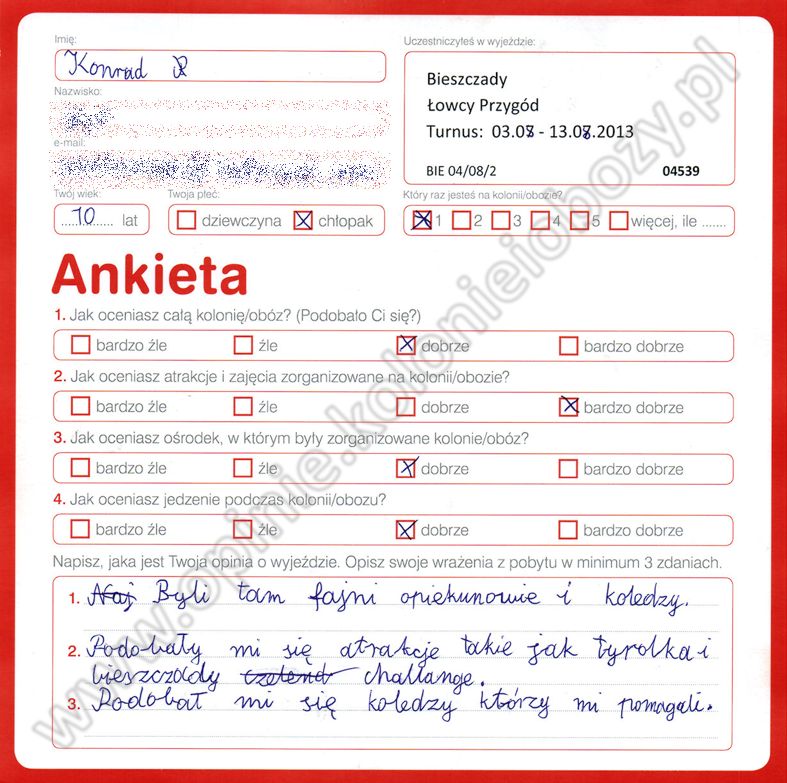 Imię:
Konrad
Nazwisko:
e-mail:
Twój wiek:
10 lat
Twoja płeć:
dziewczyna chłopak
Uczestniczyłeś w wyjeździe:
Bieszczady
Łowcy Przygód
Turnus: 03.08 - 13.08.2013
BIE 04/08/2 04539
Który raz jesteś na kolonii/obozie?
1 2 3 4 5 więcej, ile .......
Ankieta
1. Jak oceniasz całą kolonię/obóz? (Podobało Ci się?)
bardzo źle źle dobrze bardzo dobrze
2. Jak oceniasz atrakcje i zajęcia zorganizowane na kolonii/obozie?
bardzo źle źle dobrze bardzo dobrze
3. Jak oceniasz ośrodek, w którym były zorganizowane kolonie/obóz?
bardzo źle źle dobrze bardzo dobrze
4. Jak oceniasz jedzenie podczas kolonii/obozu?
bardzo źle źle dobrze bardzo dobrze
Napisz, jaka jest Twoja opinia o wyjeździe. Opisz swoje wrażenia z pobytu w minimum 3 zdaniach.
1. Naj Byli tam fajni opiekunowie i koledzy.
2. Podobały mi się atrakcje takie jak tyrolka i
bieszczady challange.
3. Podobał mi się koledzy którzy mi pomagali.
www.opinie.kolonieiobozy.pl